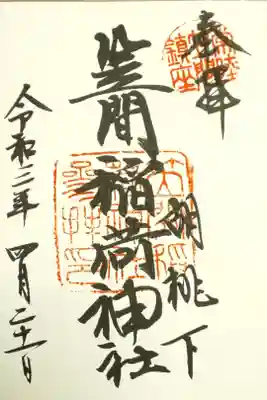 奉拝
胡桃下
笠間稲荷神社
令和二年四月二十一日